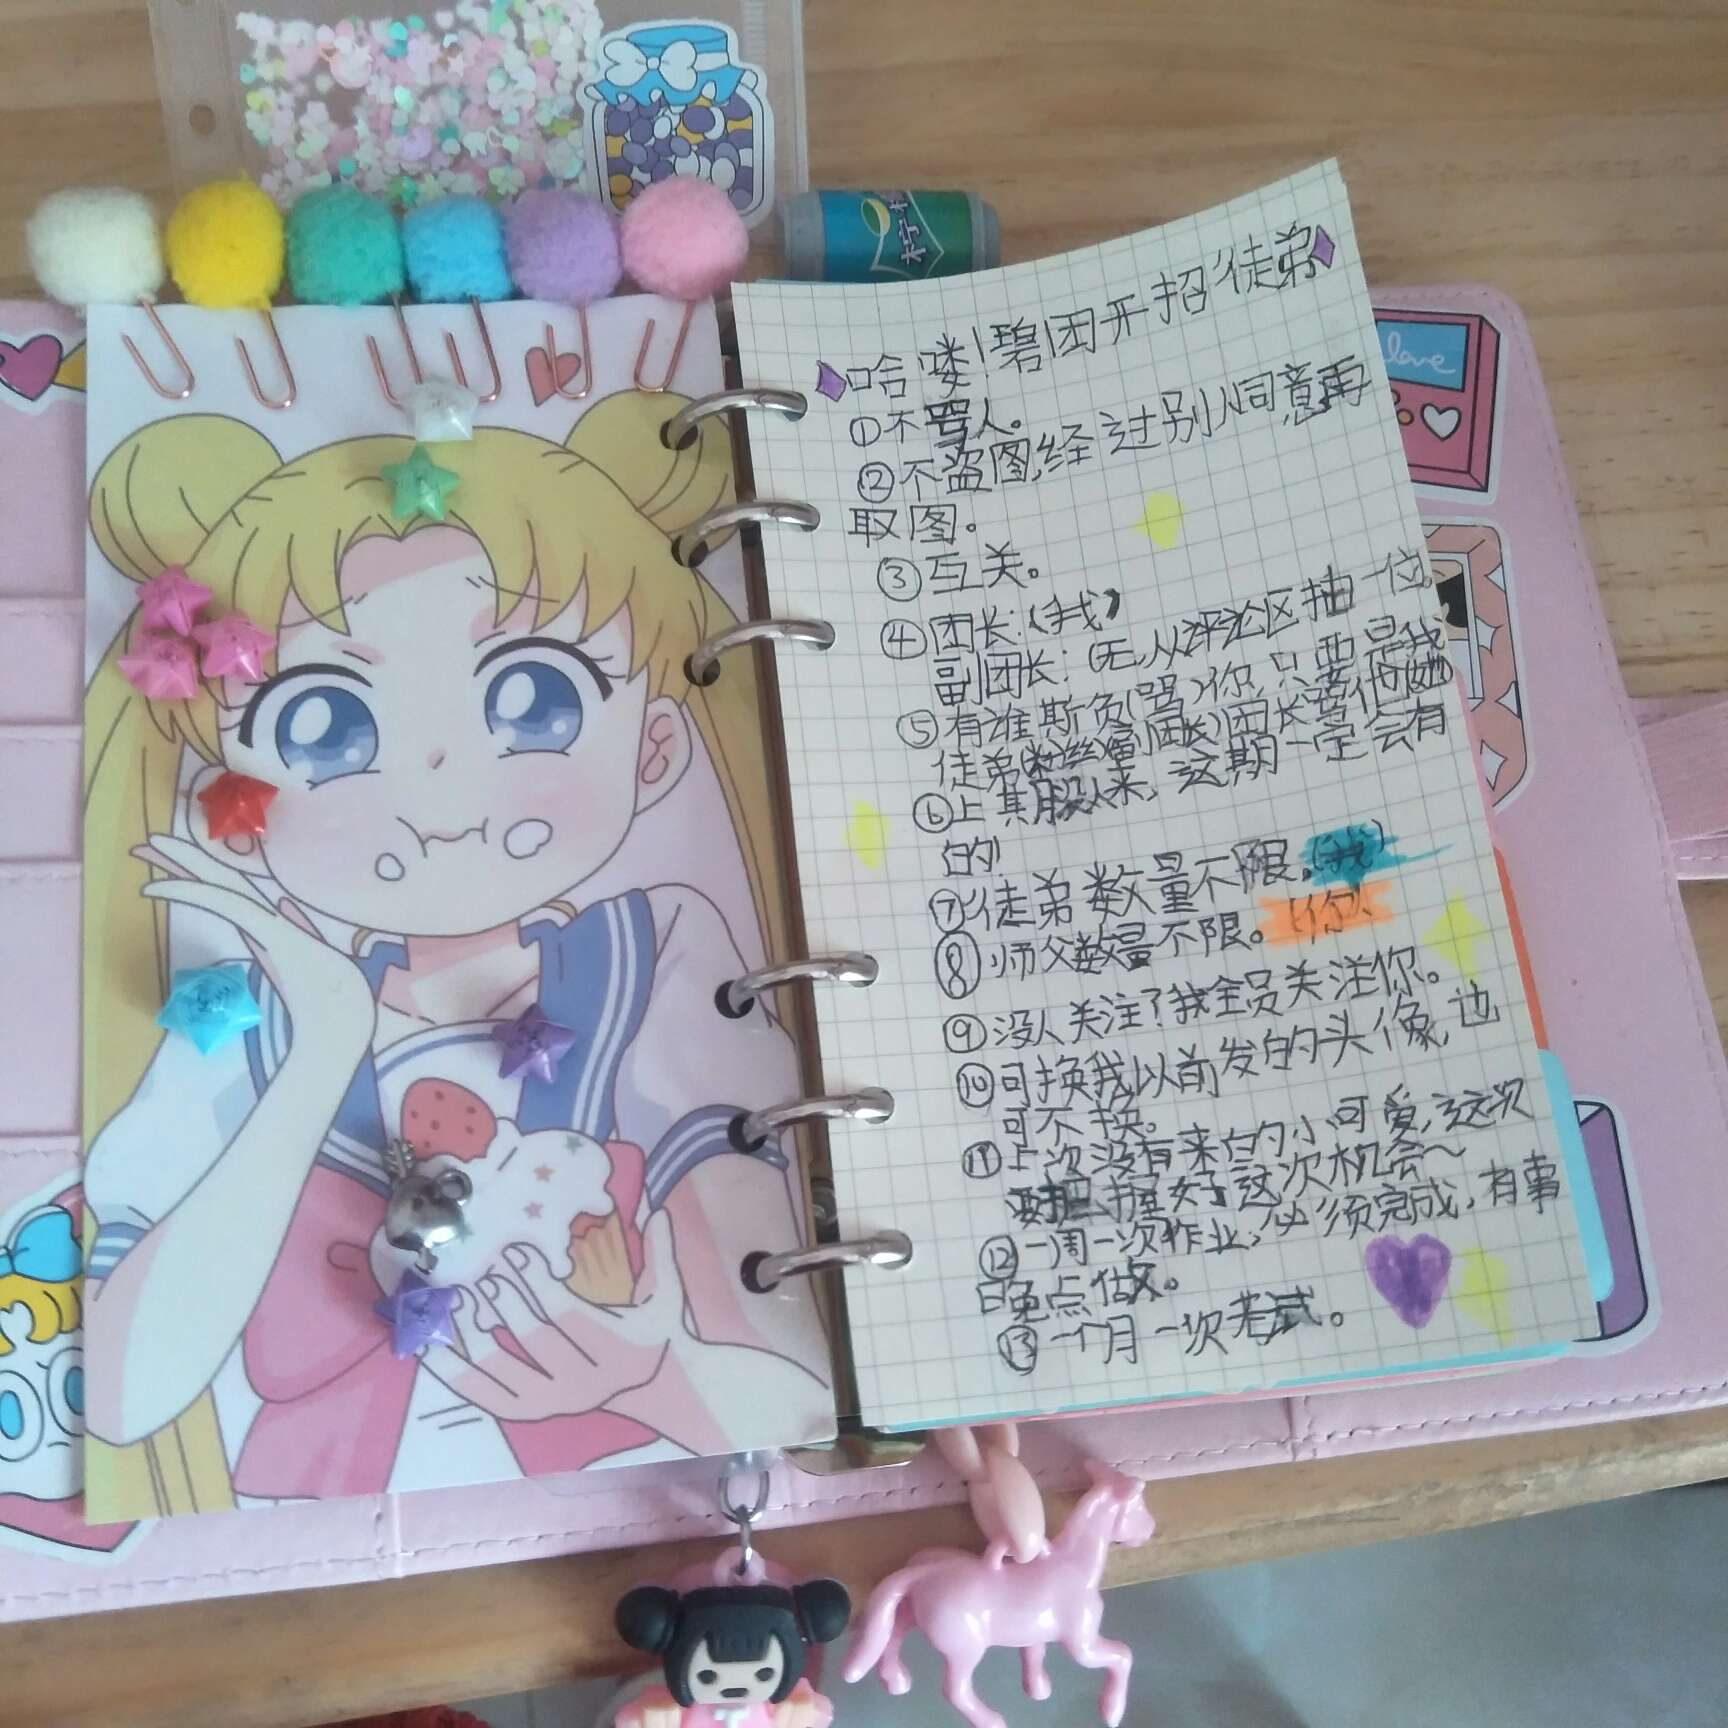 哈喽!碧团开招徒弟
①不骂人。
②不盗图,经过别人同意再
取图。
③互关。
④团长:(我)
副团长:(无,从评论区抽一位。
⑤有谁斯负(骂)你,只要是我
徒弟(粉丝)(副团长)团长骂他(她)
⑥上其月没人来,这期一定会有
的!
⑦徒弟数量不限。(我)
⑧师父数量不限。(你)
⑨没人关注?我全员关注你。
⑩可换我以前发的头像,也
可不换。
⑪上次没有来的小可爱,这次
要把握好这次机会~
⑫一周一次作业,必须完成,有事
晚点做。
⑬一个月一次考试。
love
柠